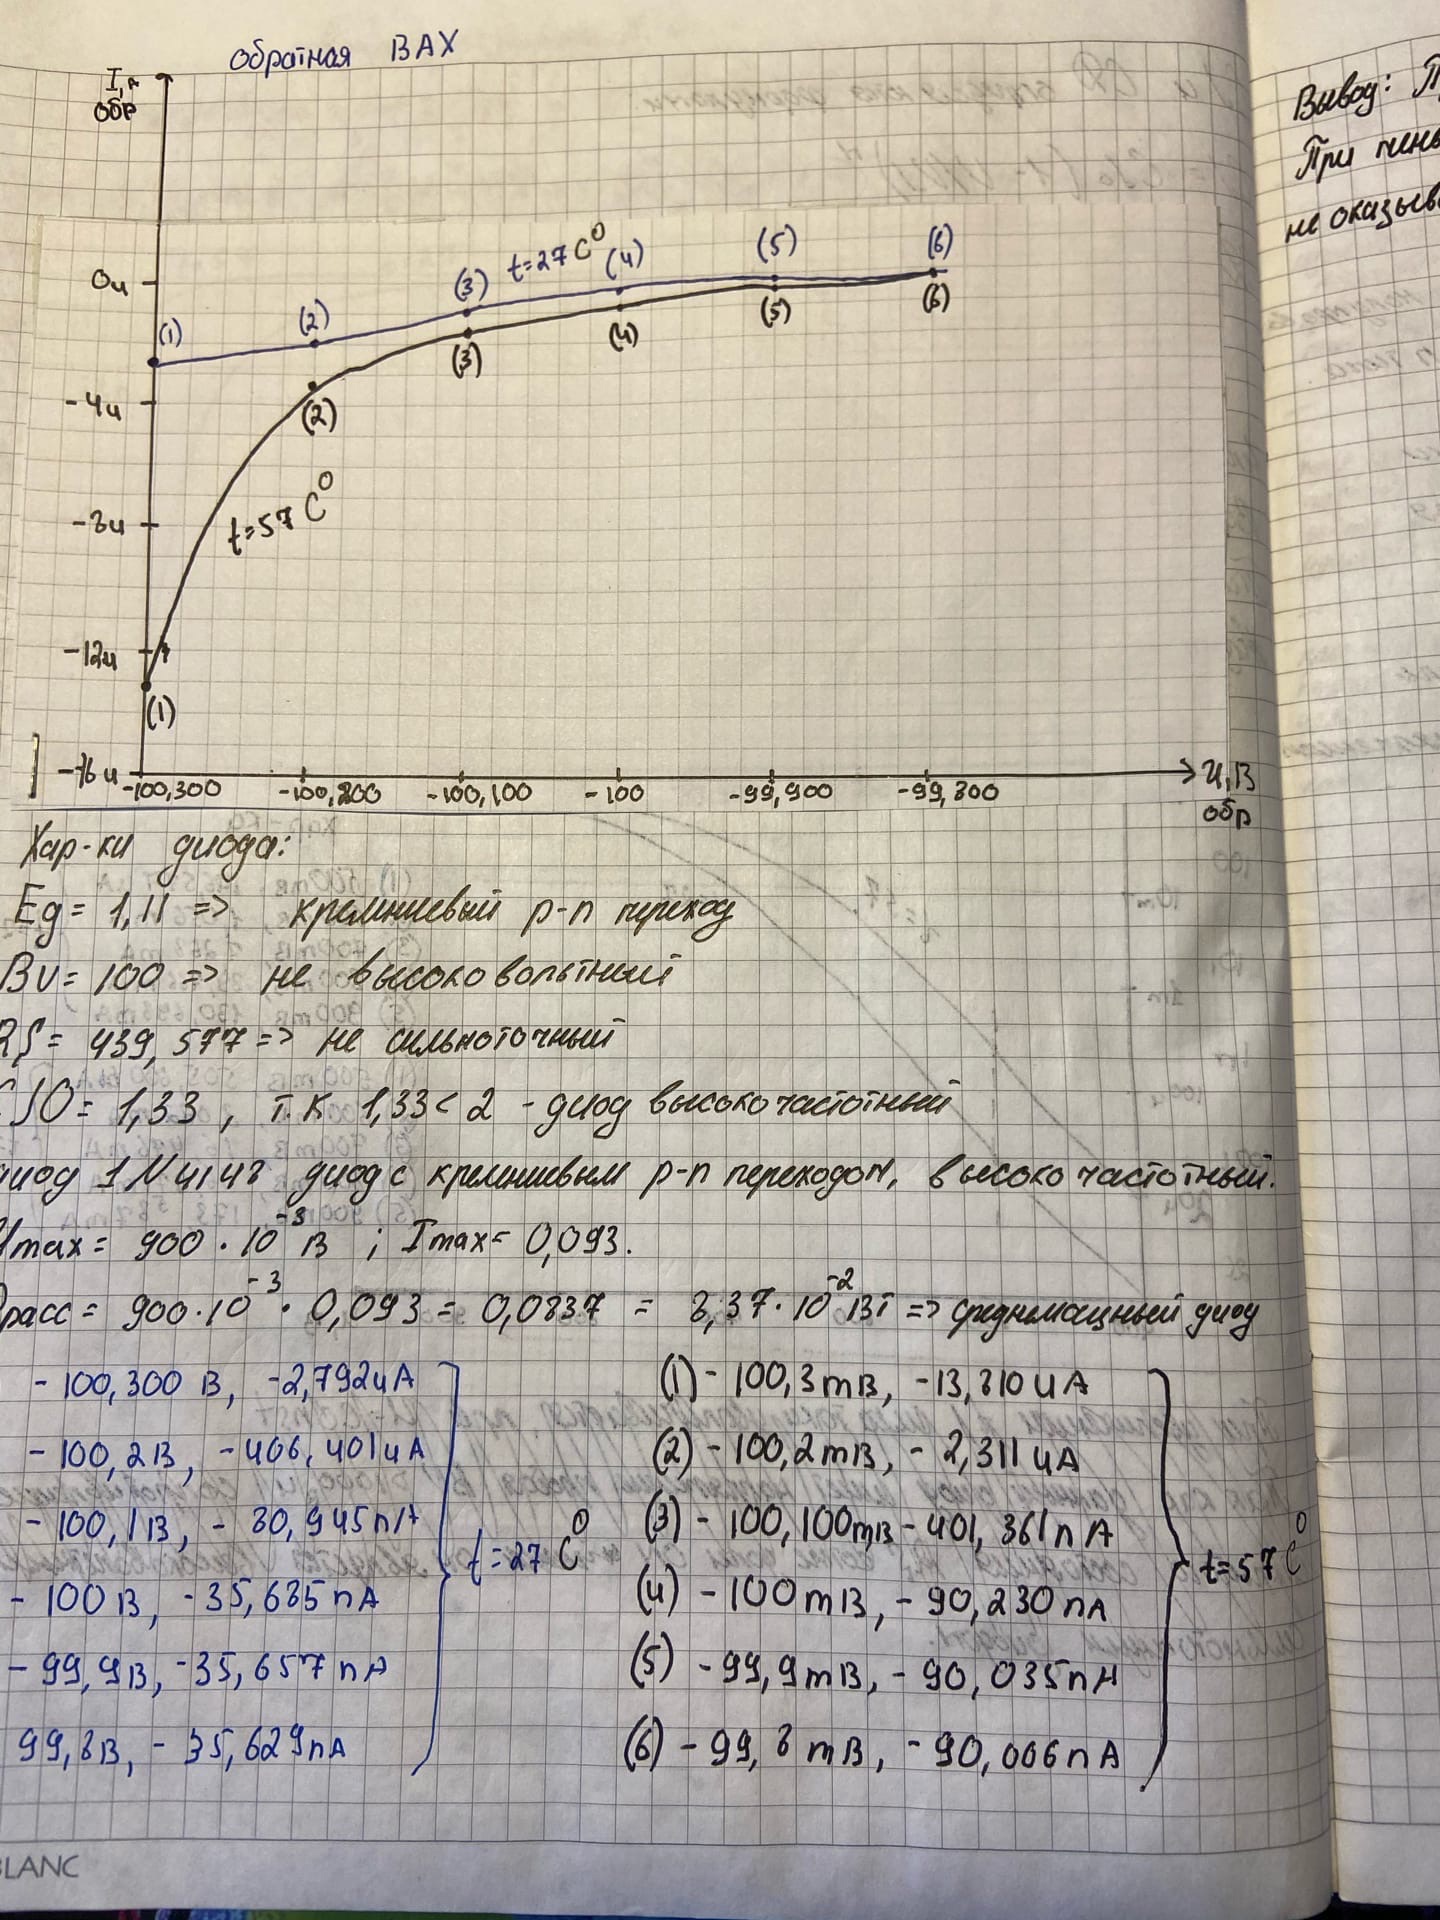 обратная ВАХ
I, A
обр
Вывод: П
При
не оказыв
t=27 C⁰
(1) (2) (3) (4) (5) (6)
0u
-4u
-8u
-12u
-16u
t=57 C⁰
(1) (2) (3) (4) (5) (6)
-100,300 -100,200 -100,100 -100 -99,900 -99,800
U, В
обр
Хар-ки диода:
Eg = 1,11 => кремниевый p-n переход
BV = 100 => не высоковольтный
RS = 439,577 => не сильноточный
CJO = 1,33, т.к 1,33 < 2 - диод высокочастотный
диод 1N4148 диод с кремниевым p-n переходом, высокочастотный.
Umax = 900 · 10⁻³ В ; Imax = 0,093.
Pрасс = 900·10⁻³ · 0,093 = 0,0837 = 8,37 · 10⁻² Вт => среднемощный диод
- 100,300 В, -2,792uA
- 100,2В, - 406,401uA
- 100,1В, - 80,945nA
- 100В, -35,685nA
- 99,9В, -35,657nA
99,8В, - 35,629nA
t=27 C⁰
(1) - 100,3mВ, -13,810uA
(2) - 100,2mВ, - 2,811uA
(3) - 100,100mВ - 401,861nA
(4) - 100mВ, - 90,230nA
(5) - 99,9mВ, - 90,035nA
(6) - 99,8mВ, - 90,006nA
t=57 C⁰
BLANC